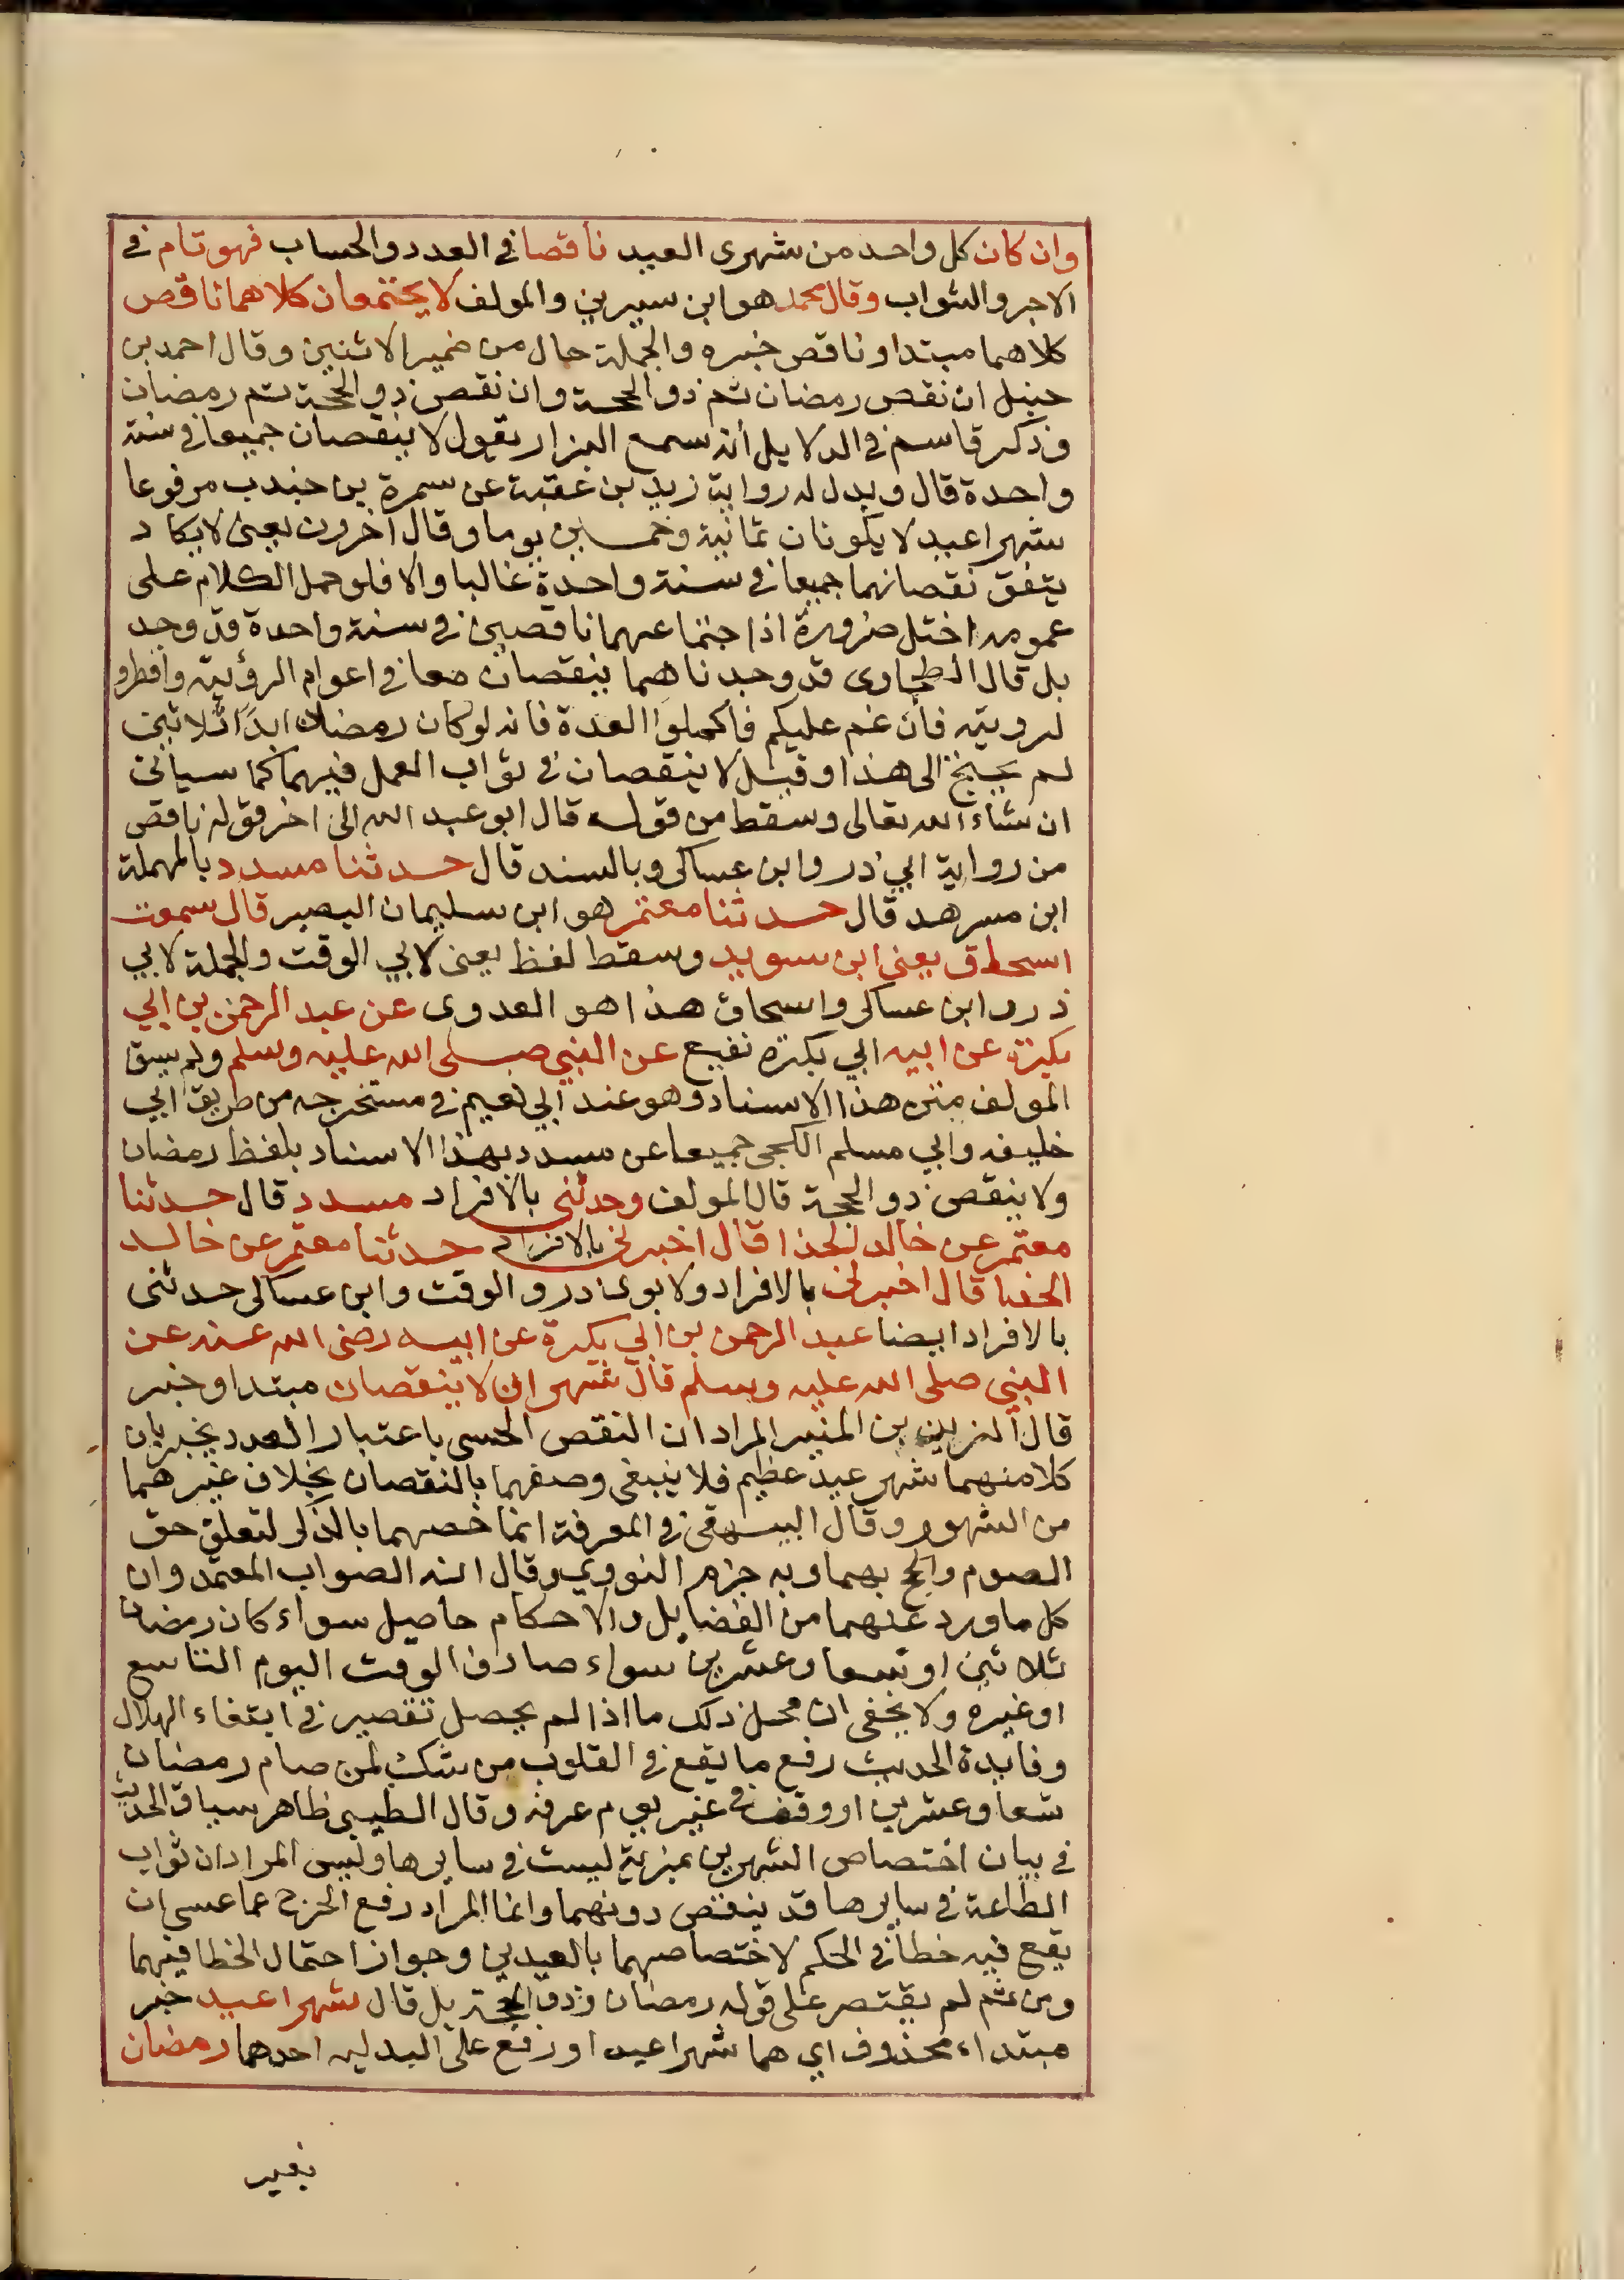 وان كان كل واحد من شهرى العيد ناقصا في العدد والحساب فهو تام في
الاجر والثواب وقال محمد هو ابن سيرين والمولف لا يجتمعان كلاهما ناقص
كلاهما مبتدا وناقص خبره والجملة حال من ضمير الاثنين وقال احمد بن
حنبل ان نقص رمضان تم ذو الحجة وان نقص ذو الحجة تم رمضان
وذكر قاسم في الدلايل أنه سمع البزار يقول لا ينقصان جميعا في سنة
واحدة قال ويدل له رواية زيد بن عقبة عن سمرة بن جندب مرفوعا
شهرا عيد لا يكونان ثمانية وخمسين يوما وقال اخرون يعنى لا يكاد
يتفق نقصانهما جميعا في سنة واحدة غالبا والا فلو حمل الكلام على
عمومه اختل ضرورة اذ اجتماعهما ناقصين في سنة واحدة قد وجد
بل قال الطحاوى قد وجدناهما ينقصان معا في اعوام الرؤيته وافطروا
لرويته فأن غم عليكم فأكملوا العدة فانه لو كان رمضان ابدًا ثلاثين
لم يحتج الى هذا وقيل لا ينقصان في ثواب العمل فيهما كما سياتى
ان شاء الله تعالى وسقط من قوله قال ابو عبد الله الى اخر قوله ناقص
من رواية ابي ذر وابن عساكر وبالسند قال حدثنا مسدد بالمهملة
ابن مسرهد قال حدثنا معتمر هو ابن سليمان البصير قال سمعت
اسحاق يعني ابن سويد وسقط لفظ يعنى لابي الوقت والجملة لابي
ذر وابن عساكر واسحاق هذا هو العدوى عن عبد الرحمن بن ابي
بكرة عن ابيه ابي بكرة نفيع عن النبي صلى الله عليه وسلم ولم يسق
المولف متن هذا الاسناد وهو عند ابي نعيم في مستخرجه من طريق ابي
خليفه وابي مسلم الكجى جميعا عن مسدد بهذا الاسناد بلفظ رمضان
ولا ينقص ذو الحجة قال المولف وحدثنى بالافراد مسدد قال حدثنا
معتمر عن خالد الحذا قال اخبرنى بالافراد حدثنا معتمر عن خالد
الحذا قال اخبرنى بالافراد ولابوى ذر والوقت وابن عساكر حدثنى
بالافراد ايضا عبد الرحمن بن ابي بكرة عن ابيه رضى الله عنه عن
النبي صلى الله عليه وسلم قال شهران لا ينقصان مبتدا وخبر
قال الزين بن المنير المراد ان النقص الحسى باعتبار العدد يجبر بان
كلا منهما شهر عيد عظيم فلا ينبغى وصفهما بالنقصان بخلاف غيرهما
من الشهور وقال البيهقى في المعرفة انما خصهما بالذكر لتعلق حق
الصوم والحج بهما وبه جزم النووي وقال انه الصواب المعتمد وان
كل ما ورد عنهما من الفضايل والاحكام حاصل سواء كان رمضان
ثلاثين او تسعا وعشرين سواء صادف الوقت اليوم التاسع
او غيره ولا يخفى ان محل ذلك ما اذا لم يحصل تقصير في ابتغاء الهلال
وفايدة الحديث رفع ما يقع في القلوب من شك لمن صام رمضان
تسعا وعشرين او وقف في غير يوم عرفه وقال الطيبى ظاهر سياق الحديث
في بيان اختصاص الشهرين بمزية ليست في سايرها وليس المراد ان ثواب
الطاعة في سايرها قد ينقص دونهما وانما المراد رفع الحرج عما عسى ان
يقع فيه خطأ في الحكم لاختصاصهما بالعيدين وجواز احتمال الخطا فيهما
ومن ثم لم يقتصر على قوله رمضان وذو الحجة بل قال شهرا عيد خبر
مبتداء محذوف اي هما شهرا عيد او رفع على البدلية احدهما رمضان
بغير